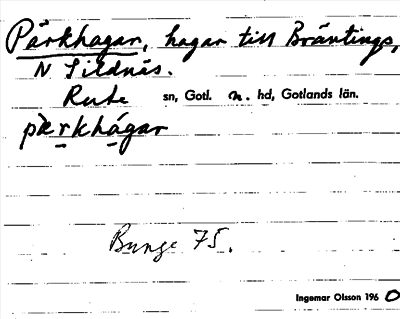 Pärkhagar, hagar till Bräntings,
N Sildnäs.
Rute sn, Gotl. n. hd, Gotlands län.
pärkhágar
Bunge 75.
Ingemar Olsson 1960